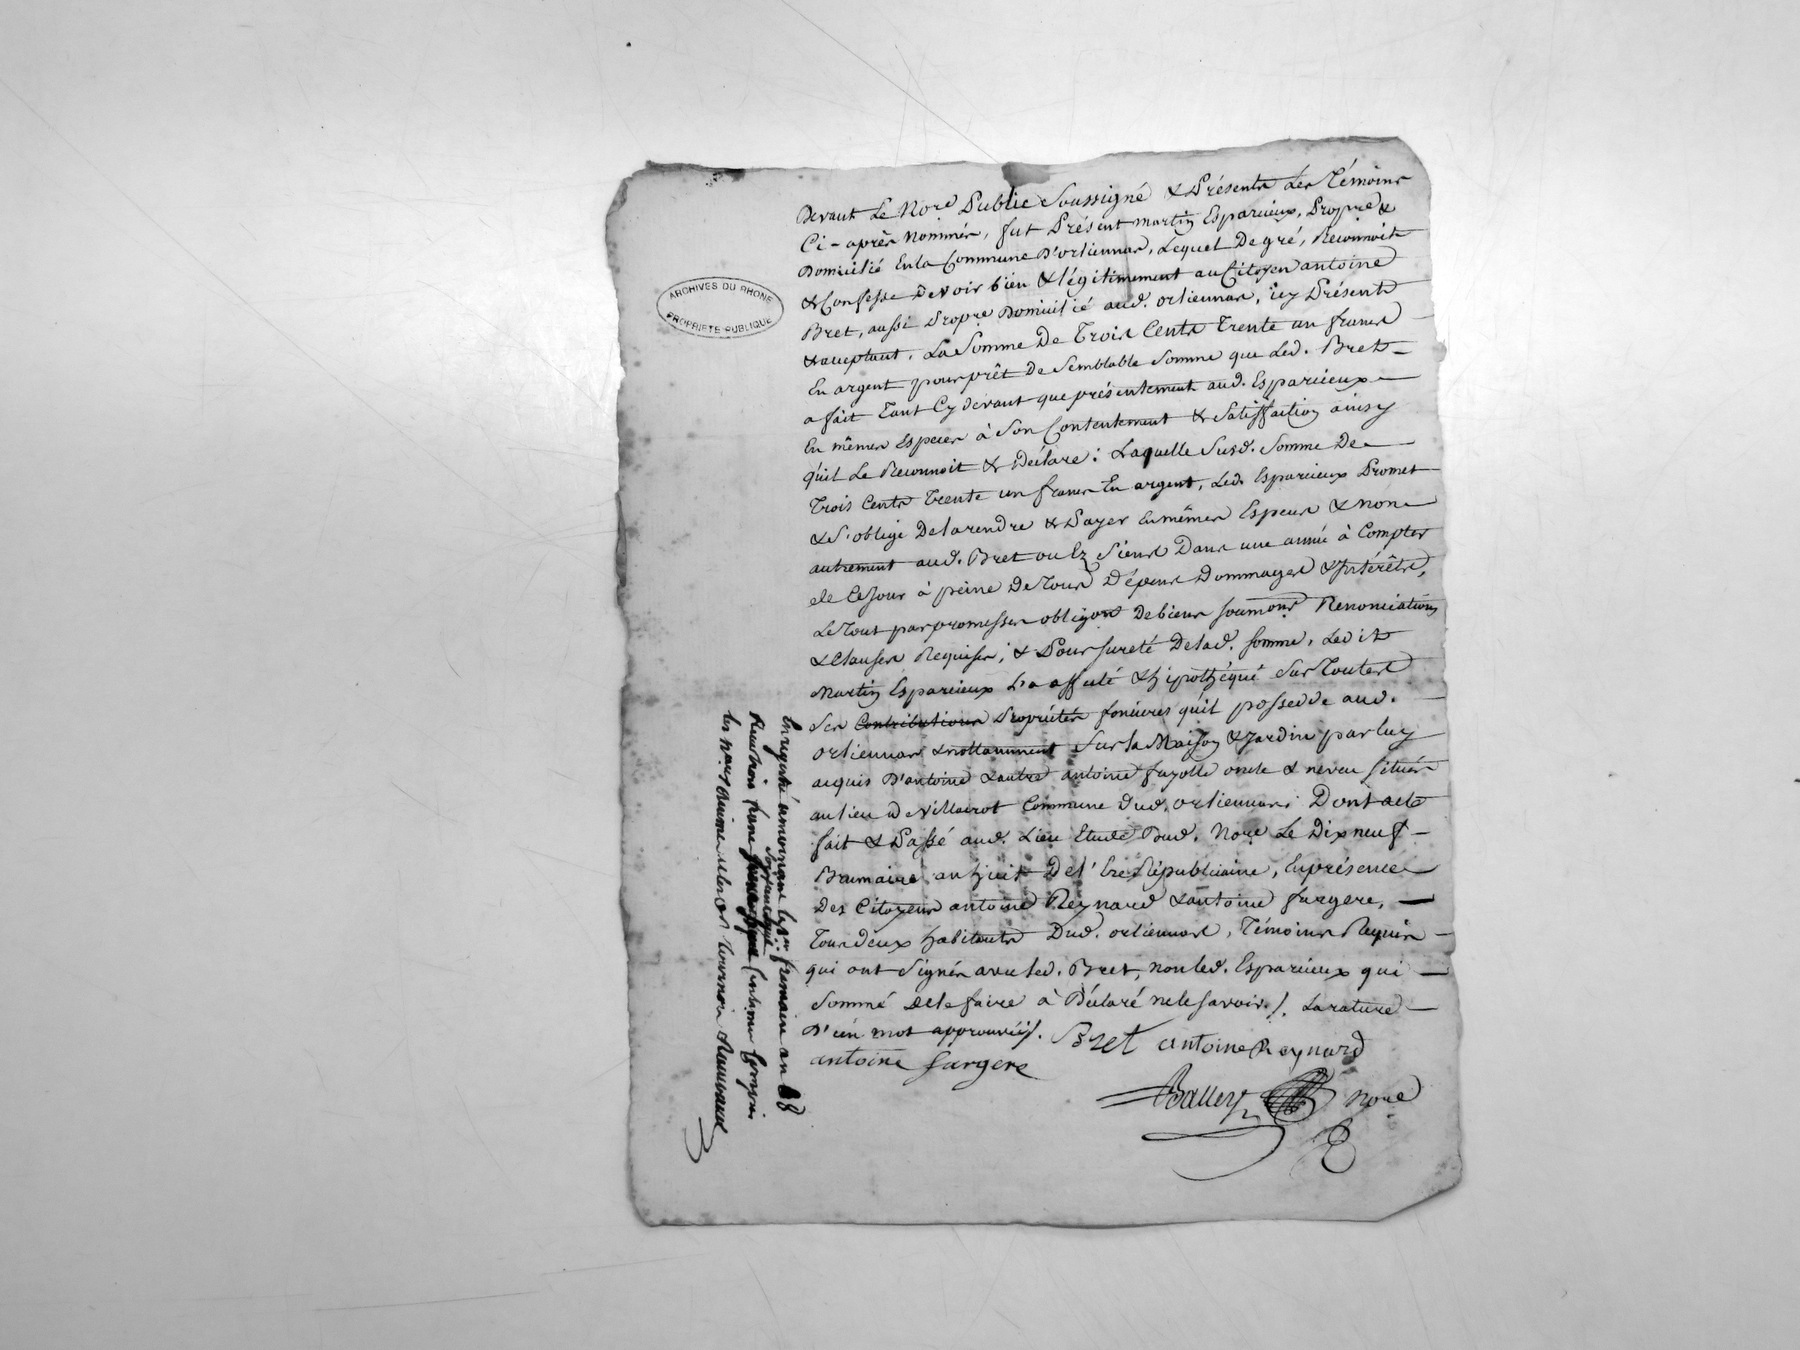 Devant Le Nore Public Soussigné & Présents Les Témoins
Ci-après Nommés, fut Présent martin Esparcieux, Propre &
Domicilié En la Commune D'orliennas, Lequel De gré, Reconnoit
& Confesse Devoir bien & légitimement au Citoyen antoine
Bret, aussi Propre Domicilié aud. orliennas, icy Présent
& acceptant, La Somme De Trois Cents Trente un francs
En argent pour prêt De Semblable Somme que Led. Bret
a fait Tant Cy devant que présentement aud. Esparcieux
En mêmes Especes à Son Contentement & Satisfaction ainsy
qu'il Le Reconnoit & Déclare; Laquelle Susd. Somme De
Trois Cents Trente un francs En argent, Led. Esparcieux Promet
& S'oblige De la rendre & Payer En mêmes Especes & non
autrement aud. Bret ou Ez Siens Dans une année à Compter
de Ce Jour à peine De Tous Dépens Dommages & Intérêts,
Le Tout par promesses obligons De biens soumons Renonciations
& Clauses Requises; & Pour sureté De lad. somme, Ledit
Martin Esparcieux L'a affecté & hipothéqué Sur Toutes
Ses Contributions Propriétés foncieres qu'il possedde aud.
orliennas & nottamment Sur la Maison & Jardin par luy
acquis D'antoine & autre antoine fayolle oncle & neveu situés
au lieu de Villairot Commune dud. orliennas; Dont acte
fait & Passé aud. Lieu Etude Dud. Nore Le Dixneuf
Brumaire an huit De l'Ere Républicaine, En présence
Des Citoyens antoine Reynard & antoine fargere,
Tous deux habitants Dud. orliennas, Témoins Requis
qui ont Signés avec led. Bret, non led. Esparcieux qui
Sommé de le faire à Déclaré ne le savoir./. La rature
D'un mot approuvée/. Bret antoine Reynard
antoine fargere
Nore
Enregistré a mornant le 1er frimaire an 8
Reçu trois francs soixante
ARCHIVES DU RHONE
PROPRIETE PUBLIQUE